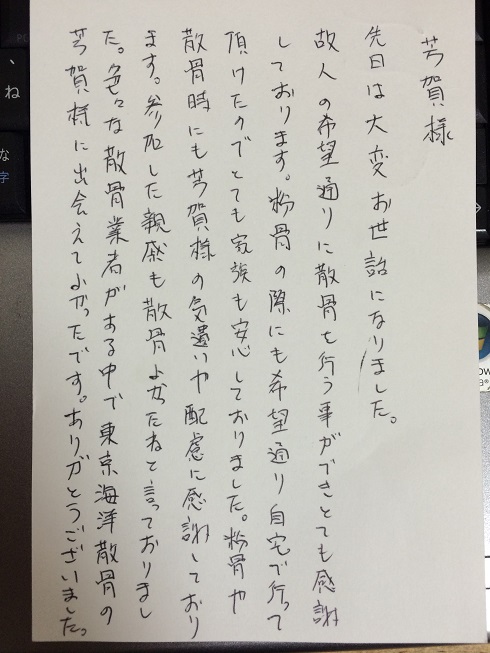 芳賀様
先日は大変お世話になりました。
故人の希望通りに散骨を行う事ができとても感謝
しております。粉骨の際にも希望通り自宅で行って
頂けたのでとても家族も安心しておりました。粉骨や
散骨時にも芳賀様の気遣いや配慮に感謝しており
ます。参加した親戚も散骨よかったねと言っておりまし
た。色々な散骨業者がある中で東京海洋散骨の
芳賀様に出会えてよかったです。ありがとうございました。
、
ね
な
字